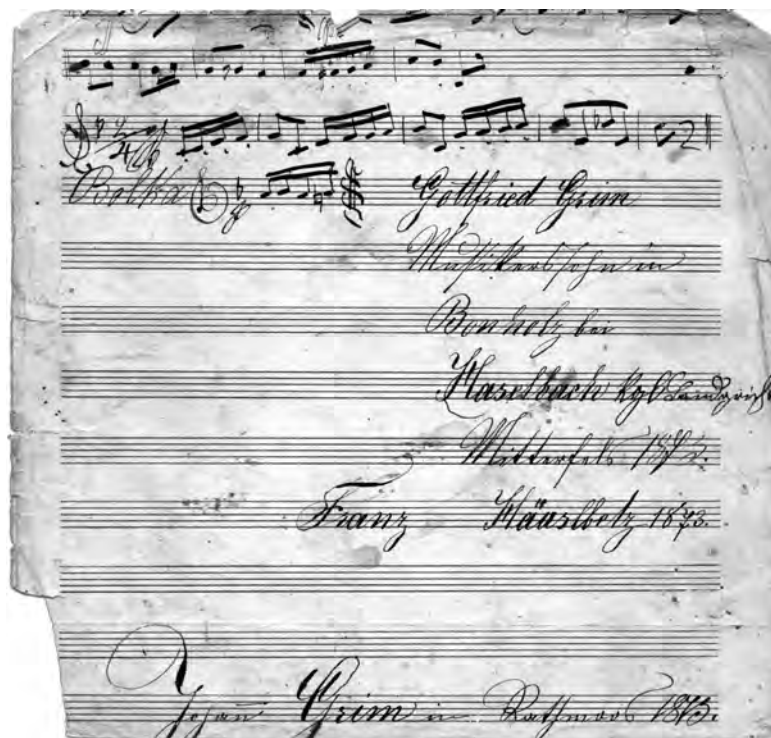 Polka Gottfried Grim
Musikerssohn in
Bonholz bei
Haselbach kgl Landgericht
Mitterfels
Franz 1873.
Johann Grim in Rathmoos 1873.